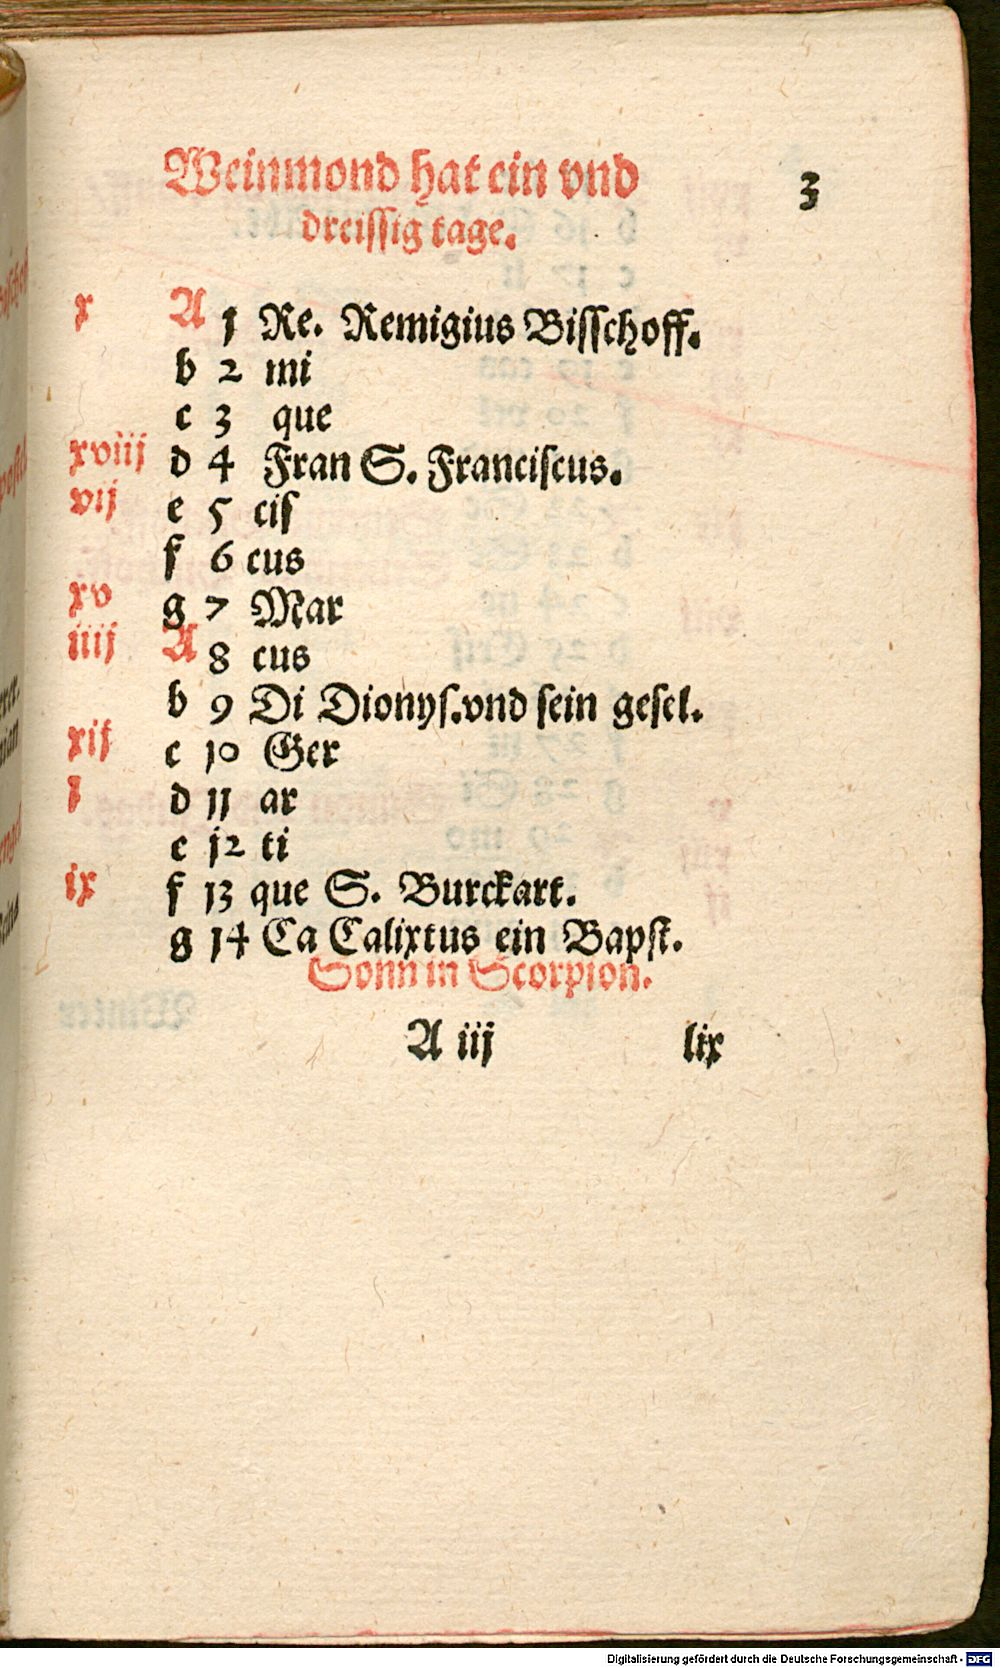 Weinmond hat ein vnd
3
dreissig tage.
x A 1 Re. Remigius Bisschoff.
b 2 mi
c 3 que
xviij d 4 Fran S. Franciscus.
vij e 5 cis
f 6 cus
xv g 7 Mar
iiij A 8 cus
b 9 Di Dionys. vnd sein gesel.
xij c 10 Ger
j d 11 ar
e 12 ti
ix f 13 que S. Burckart.
g 14 Ca Calixtus ein Bapst.
Sonn in Scorpion.
A iij lix
Digitalisierung gefördert durch die Deutsche Forschungsgemeinschaft - DFG